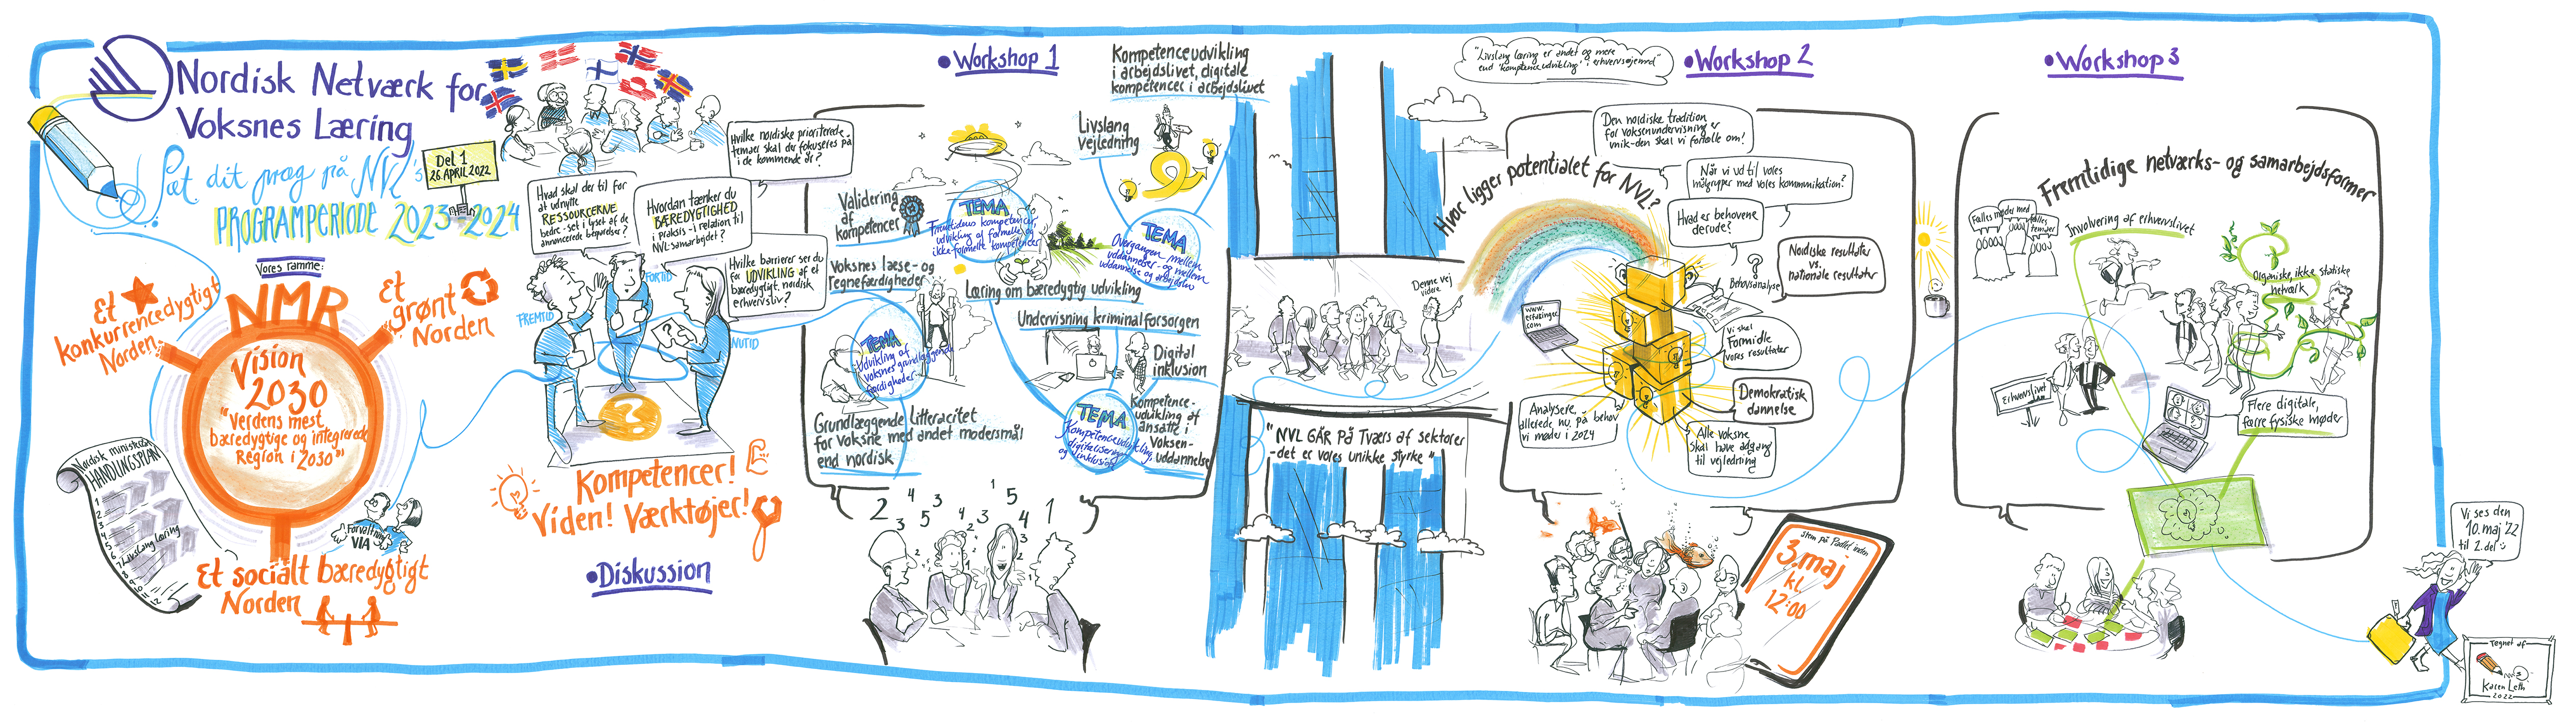 Nordisk Netværk for
Voksnes Læring
Sæt dit præg på NVL's
PROGRAMPERIODE 2023-2024
Del 1
26. APRIL 2022
Vores ramme:
NMR
Et
konkurrencedygtigt
Norden
Et
grønt
Norden
Vision
2030
"Verdens mest
bæredygtige og integrerede
Region i 2030"
Nordisk ministerråd
HANDLINGSPLAN
1
2
3
4
5
6
7 Livslang læring
8
9
10
11
12
Forvaltning
VIA
Et socialt bæredygtigt
Norden
Hvilke nordiske prioriterede
temaer skal der fokuseres på
i de kommende år?
Hvad skal der til for
at udnytte
RESSOURCERNE
bedre - set i lyset af de
annoncerede besparelser?
Hvordan tænker du
BÆREDYGTIGHED
i praksis - i relation til
NVL-samarbejdet?
Hvilke barrierer ser du
for UDVIKLING af et
bæredygtigt, nordisk
erhvervsliv?
FREMTID
FORTID
NUTID
?
Kompetencer!
Viden! Værktøjer!
• Diskussion
• Workshop 1
Kompetenceudvikling
i arbejdslivet, digitale
kompetencer i arbejdslivet
Livslang
vejledning
Validering
af
kompetencer
TEMA
Fremtidens kompetencer,
udvikling af formelle og
ikke formelle kompetencer
TEMA
Overgangen mellem
uddannelser - og mellem
uddannelse og arbejdsliv
Voksnes læse- og
regnefærdigheder
Læring om bæredygtig udvikling
Undervisning kriminalforsorgen
TEMA
Udvikling af
voksnes grundlæggende
færdigheder
Digital
inklusion
TEMA
Kompetenceudvikling,
digitalisering
og inklusion
Kompetence-
udvikling af
ansatte i
Voksen-
uddannelse
Grundlæggende Litteracitet
for voksne med andet modersmål
end nordisk
2 3 4 5 3 4 2 3 1 5 4 3 2 1
"Livslang læring er andet og mere
end 'kompetenceudvikling' i erhvervsøjemed"
• Workshop 2
Den nordiske tradition
for voksenundervisning er
unik - den skal vi fortælle om!
Hvor ligger potentialet for NVL?
Når vi ud til vores
målgrupper med vores kommunikation?
Hvad er behovene
derude?
Nordiske resultater
vs.
nationale resultater
?
Behovsanalyse
Denne vej
videre
www.
erfaringer.
com
Vi skal
Formidle
vores resultater
Demokratisk
dannelse
Analysere,
allerede nu, på behov
vi møder i 2024
Alle voksne
skal have adgang
til vejledning
"NVL GÅR På Tværs af sektorer
- det er vores unikke styrke"
stem på Padlet inden
3. maj
kl
12:00
• Workshop 3
Fremtidige netværks- og samarbejdsformer
Fælles møder med
fælles
temaer
Involvering af erhvervslivet
Organiske, ikke statiske
netværk
Erhvervslivet
Flere digitale,
færre fysiske møder
Vi ses den
10. maj '22
til 2. del
Tegnet af
Karen Leth
2022